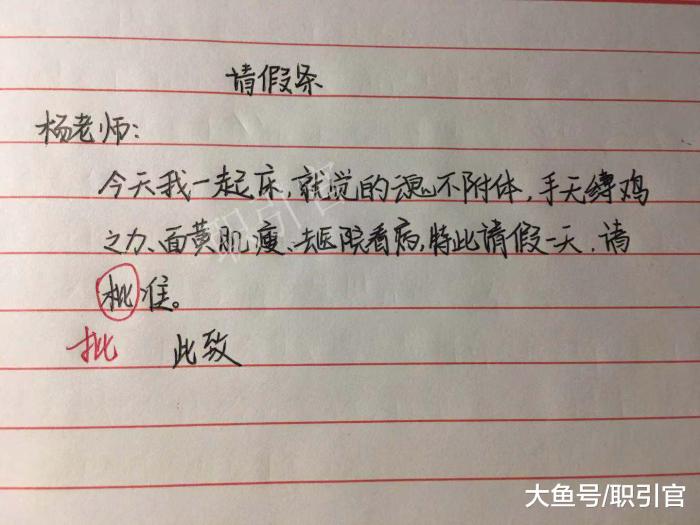 请假条
杨老师:
今天我一起床,就觉的魂不附体,手无缚鸡
之力、面黄肌瘦、去医院看病,特此请假一天.请
枇准。
批 此致
职引官
大鱼号/职引官